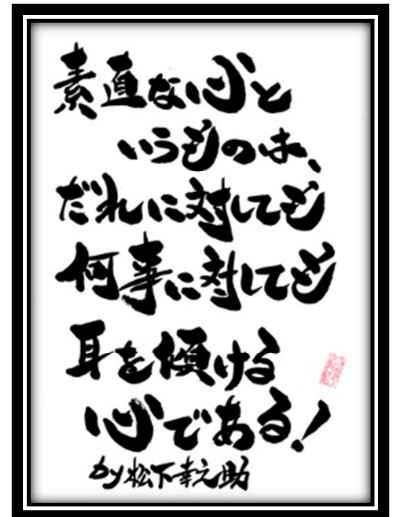 素直な心と
いうものは、
だれに対しても
何事に対しても
耳を傾ける
心である！
by松下幸之助